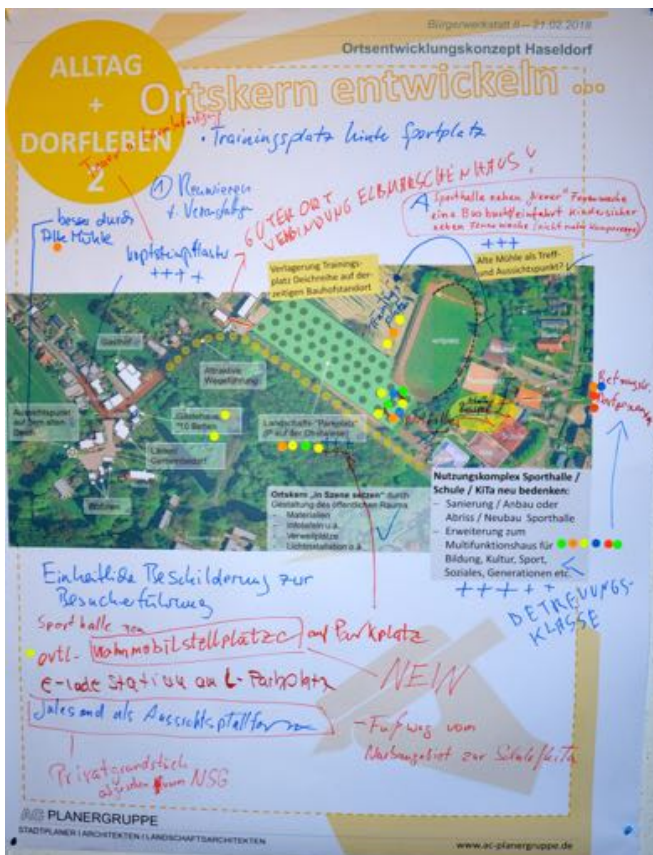 Bürgerwerkstatt II – 21.02.2018
Ortsentwicklungskonzept Haseldorf
ALLTAG
+
DORFLEBEN
2
Ortskern entwickeln ...
• Trainingsplatz hinter Sportplatz
① Renovieren
f. Veranstaltung
GUTER ORT
VERBINDUNG ELBMARSCHENHAUS!
Sporthalle neben "neuer" Feuerwache
eine Bus bucht/einfahrt Kindersicher
neben Feuerwache (nicht nahe
+++
besser durch
Alte Mühle
kopfsteinpflaster
++++
Verlagerung Trainings-
platz Deichreihe auf der-
zeitigen Bauhofstandort
Alte Mühle als Treff-
und Aussichtspunkt?
Gasthof
Attraktive
Wegeführung
Aussichtspunkt
auf dem alten
Deich
Gästehaus
*10 Betten
Landschafts-"Parkplatz"
(P auf der Obstwiese)
Wohnen
Ortskern „in Szene setzen" durch
Gestaltung des öffentlichen Raums
- Materialien
- Infotafeln u.ä.
- Verweilplätze
- Lichtinstallation o.ä.
Nutzungskomplex Sporthalle /
Schule / KiTa neu bedenken:
- Sanierung / Anbau oder
Abriss / Neubau Sporthalle
- Erweiterung zum
Multifunktionshaus für
Bildung, Kultur, Sport,
Soziales, Generationen etc.
+++++
BETREUUNGS-
KLASSE
Einheitliche Beschilderung zur
Besucherführung
Sporthalle
evtl. Wohnmobilstellplätze auf Parkplatz
NEIN
e-lade Station am L-Parkplatz
als Aussichtsplattform
- Fußweg vom
Neubaugebiet zur Schule/KiTa
Privatgrundstück
NSG
AC PLANERGRUPPE
STADTPLANER | ARCHITEKTEN | LANDSCHAFTSARCHITEKTEN
www.ac-planergruppe.de